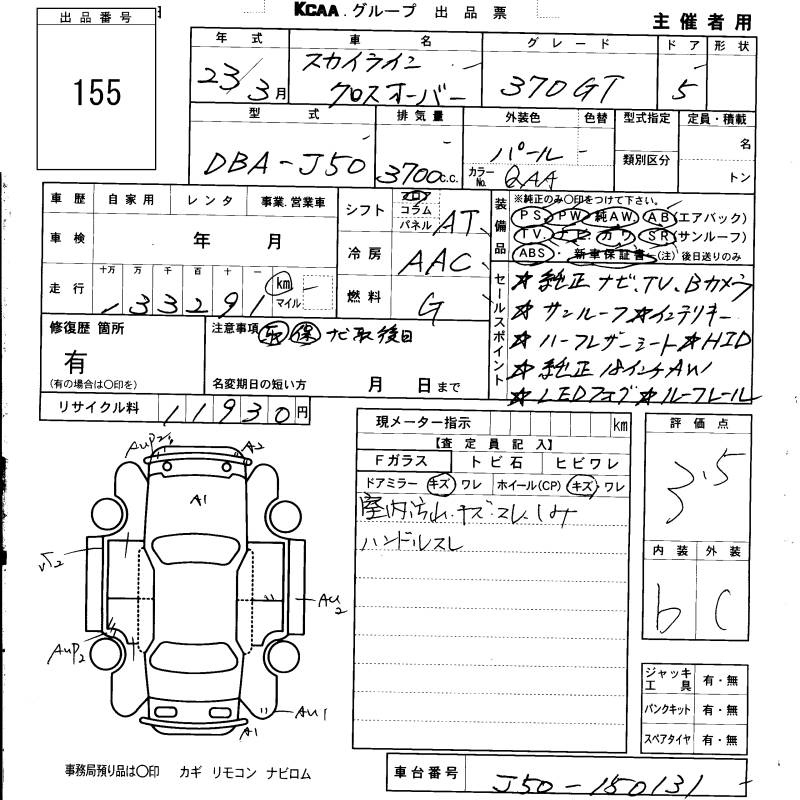 KCAA.グループ 出品票
主催者用
出品番号
155
年式 車名 グレード ドア 形状
23/3月 スカイライン クロスオーバー 370GT 5
型式 排気量 外装色 色替 型式指定 定員・積載
DBA-J50 3700c.c. パール 類別区分 名
カラーNo. QAA トン
車歴 自家用 レンタ 事業.営業車
車検 年 月
走行 十万 万 千 百 十 一
133291 km マイル
シフト フロ コラム パネル AT
冷房 AAC
燃料 G
装備品
※純正のみ○印をつけて下さい。
PS PW 純AW AB(エアバック)
TV. ナビ カワ SR(サンルーフ)
ABS・新車保証書 (注)後日送りのみ
セールスポイント
★純正ナビ、TV、Bカメラ
★サンルーフ★インテリキー
★ハーフレザーシート★HID
★純正18インチAW
★LEDフォグ★ルーフレール
修復歴 箇所
有
(有の場合は○印を)
注意事項 取 保 ナビ取後日
名変期日の短い方 月 日まで
リサイクル料 11930円
現メーター指示 km
【査定員記入】
Fガラス トビ石 ヒビワレ
ドアミラー キズ ワレ ホイール(CP) キズ ワレ
室内汚れ.キズ.スレ.しみ
ハンドルスレ
評価点
3.5
内装 外装
b C
AUP2 A2
A1
√2
AU2
AUP2
AU1
A1
ジャッキ工具 有・無
パンクキット 有・無
スペアタイヤ 有・無
事務局預り品は○印 カギ リモコン ナビロム
車台番号 J50-150131